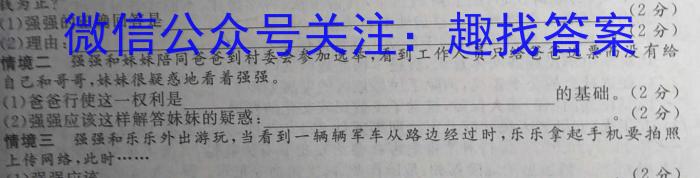 钱为止?
(1)强强的 答是 (2分)
(2)理由: (2分)
微信公众号关注:趣找答案
情境二 强强和妹妹陪同爸爸到村委会参加选举,看到工作人员只给爸爸选票而没有给
自己和哥哥,妹妹很疑惑地看着强强。
(1)爸爸行使这一权利是 的基础。(2分)
(2)强强应该这样解答妹妹的疑惑: 。(2分)
情境三 强强和乐乐外出游玩,当看到一辆辆军车从路边经过时,乐乐拿起手机要拍照
上传网络,此时……
(1)强强应该 (2分)